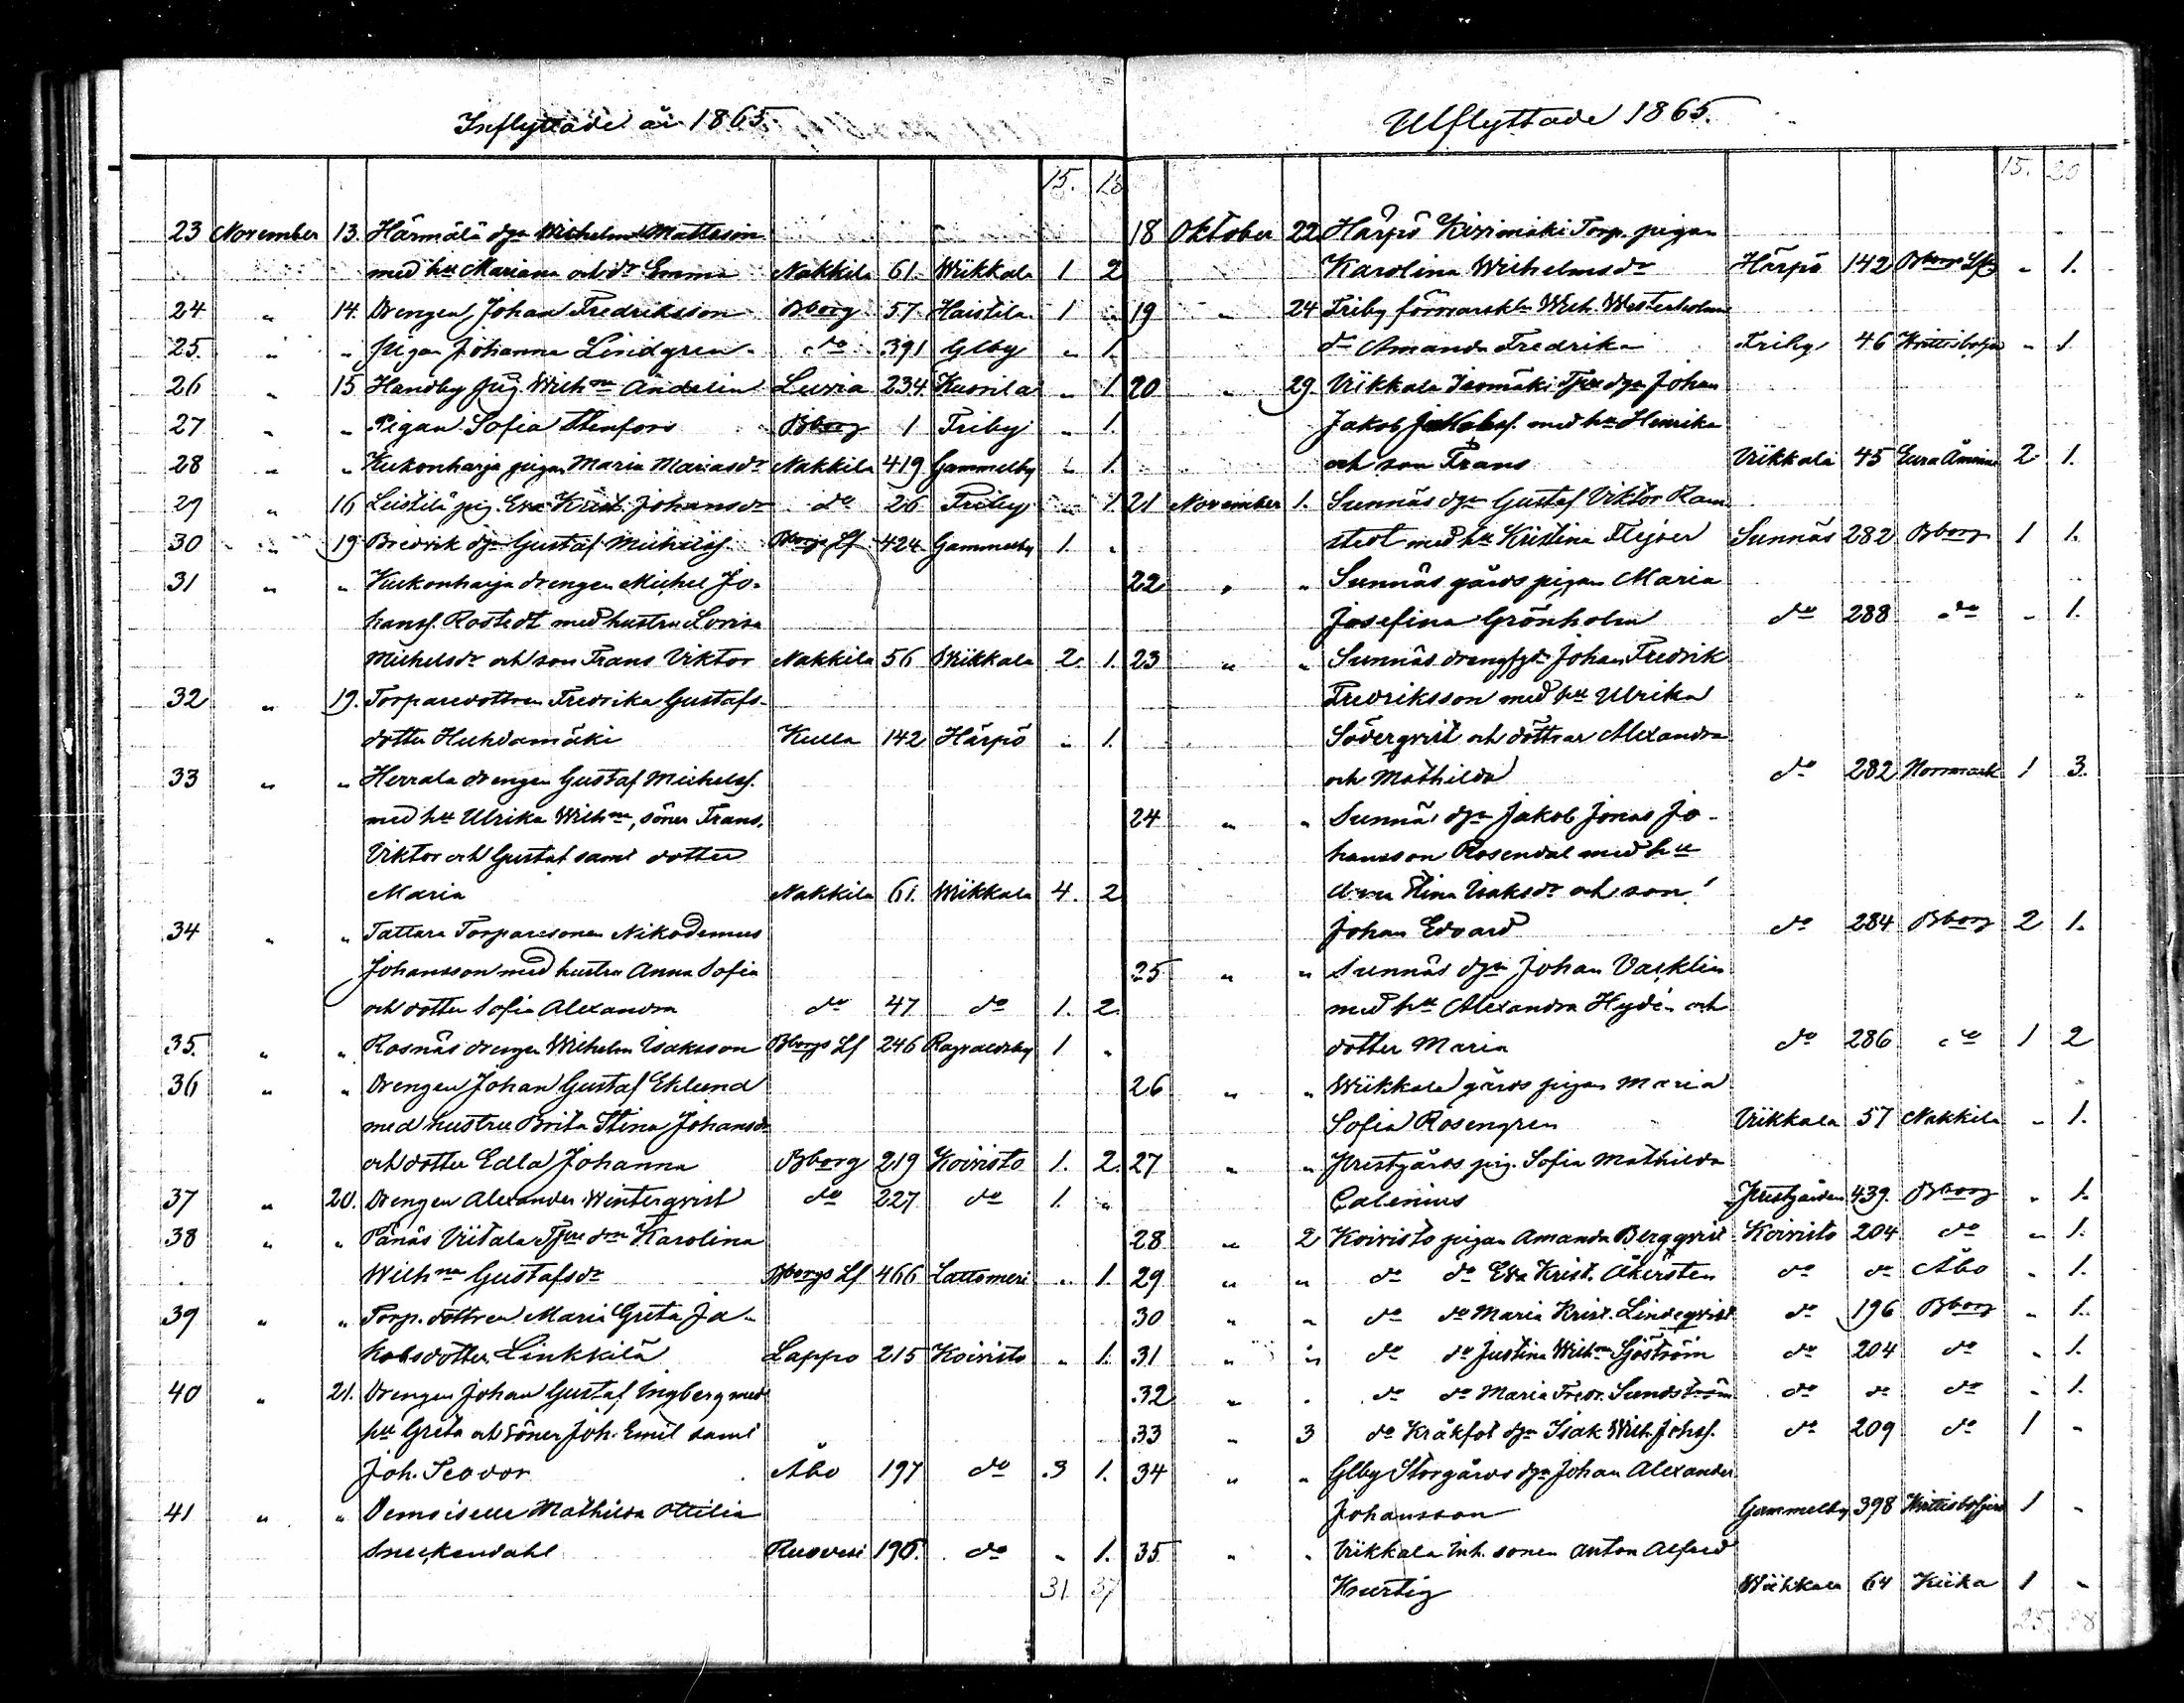 Inflyttade år 1865
15. 15
23 November 13. Härmälä dgn Wilhelm Mattsson
med hu Mariana och dr Emma Nakkila 61. Wiikkala 1 2
24 " 14. Drengen Johan Fredriksson Bborg 57 Haistila 1 "
25. " " Pigan Johanna Lindgren do 391 Glby " 1.
26 " 15 Handby pig. Wilhna Andelin Luvia 234 Kuvila " 1.
27 " " Pigan Sofia Stenfors Bborg 1 Friby " 1.
28 " " Kukonharja pigan Maria Mariasdr Nakkila 419 Gammelby " 1.
29 " 16 Leistilä pig. Eva Krist. Johansdr do 26 Friby " 1
30 " 19 Bredvik dgn Gustaf Michelsf. Bborgs Lf 424 Gammelby 1. "
31 " " Kukonharja drengen Michel Jo-
hansf. Rostedt med hustru Lovisa
Michelsdr och son Frans Viktor Nakkila 56 Wiikkala 2. 1.
32 " 19. Torparedottren Fredrika Gustafs-
dotter Huhdamäki Kulla 142 Härpö " 1.
33 " " Herrala drengen Gustaf Michelsf.
med hu Ulrika Wilhna, söner Frans,
Viktor och Gustaf samt dotter
Maria Nakkila 61. Wiikkala 4. 2
34 " " Tattara Torparesonen Nikodemus
Johansson med hustru Anna Sofia
och dotter Sofia Alexandra do 47 do 1. 2.
35. " " Rosnäs drengen Wilhelm Isaksson Bborgs Lf 246 Ragvaldsby 1 "
36 " " Drengen Johan Gustaf Eklund
med hustru Brita Stina Johansdr
och dotter Edla Johanna Bborg 219 Koivisto 1. 2.
37 " 20. Drengen Alexander Wintergvist do 227 do 1. "
38 " " Pånäs Viitala Tpre drn Karolina
Wilhna Gustafsdr Bborgs Lf 466 Lattomeri " 1.
39 " " Torp. dottren Maria Greta Ja-
kobsdotter Linkkilä Lappo 215 Koivisto " 1.
40 " 21. Drengen Johan Gustaf Ingberg med
hu Greta och söner Joh. Emil samt
Joh. Teodor Åbo 197 do 3 1.
41 " " Demoiselle Mathilda Ottilia
Sneckendahl Ruovesi 195. do " 1.
31 37
Utflyttade 1865.
15. 20
18 Oktober 22. Härpö Kivimäki Torp. pigan
Karolina Wilhelmsdr Härpö 142 Bborgs Lfs " 1.
19 " 24 Friby Wilh. Westerholms
dr Amanda Fredrika Friby 46 " 1.
20 " 29. Viikkala Isomäki Tpre dgn Johan
Jakob Jakobsf. med hu Henrika
och son Frans Viikkala 45 Eura Åminne 2 1.
21 November 1. Sunnäs dgn Gustaf Viktor Ram
stedt med hu Kristina Flejver Sunnäs 282 Bborg 1 1.
22 " " Sunnäs gårds pigan Maria
Josefina Grönholm do 288 do " 1.
23 " " Sunnäs Johan Fredrik
Fredriksson med hu Ulrika
Södergvist och döttrar Alexandra
och Mathilda do 282 Norrmark 1 3.
24 " " Sunnäs dgn Jakob Jonas Jo-
hansson Rosendal med hu
Anna Stina Isaksdr och son
Johan Edvard do 284 Bborg 2 1.
25 " " Sunnäs dgn Johan Vasklin
med hu Alexandra Hydén och
dotter Maria do 286 do 1 2
26 " " Wiikkala gårds pigan Maria
Sofia Rosengren Viikkala 57 Nakkila " 1.
27 " " Prestgårds pig. Sofia Mathilda
Calenius Prestgården 439. Bborg " 1.
28 " 2 Koivisto pigan Amanda Berggvist Koivisto 204 do " 1.
29 " " do do Eva Krist. Åkersten do do Åbo " 1.
30 " " do do Maria Krist. Lindegvist do 196 Bborg " 1.
31 " " do do Justina Wilhna Sjöström do 204 do " 1.
32 " " do do Maria Fredr. Sundström do do do " 1.
33 " 3 do Kråkfot dgn Isak Wilh. Johsf. do 209 do 1 "
34 " " Glby Storgårds dgn Johan Alexander
Johansson Gammelby 398 1 "
35 " " Viikkala Inh. sonen Anton Alfred
Hurtig Wiikkala 64 Kiika 1 "
25 28